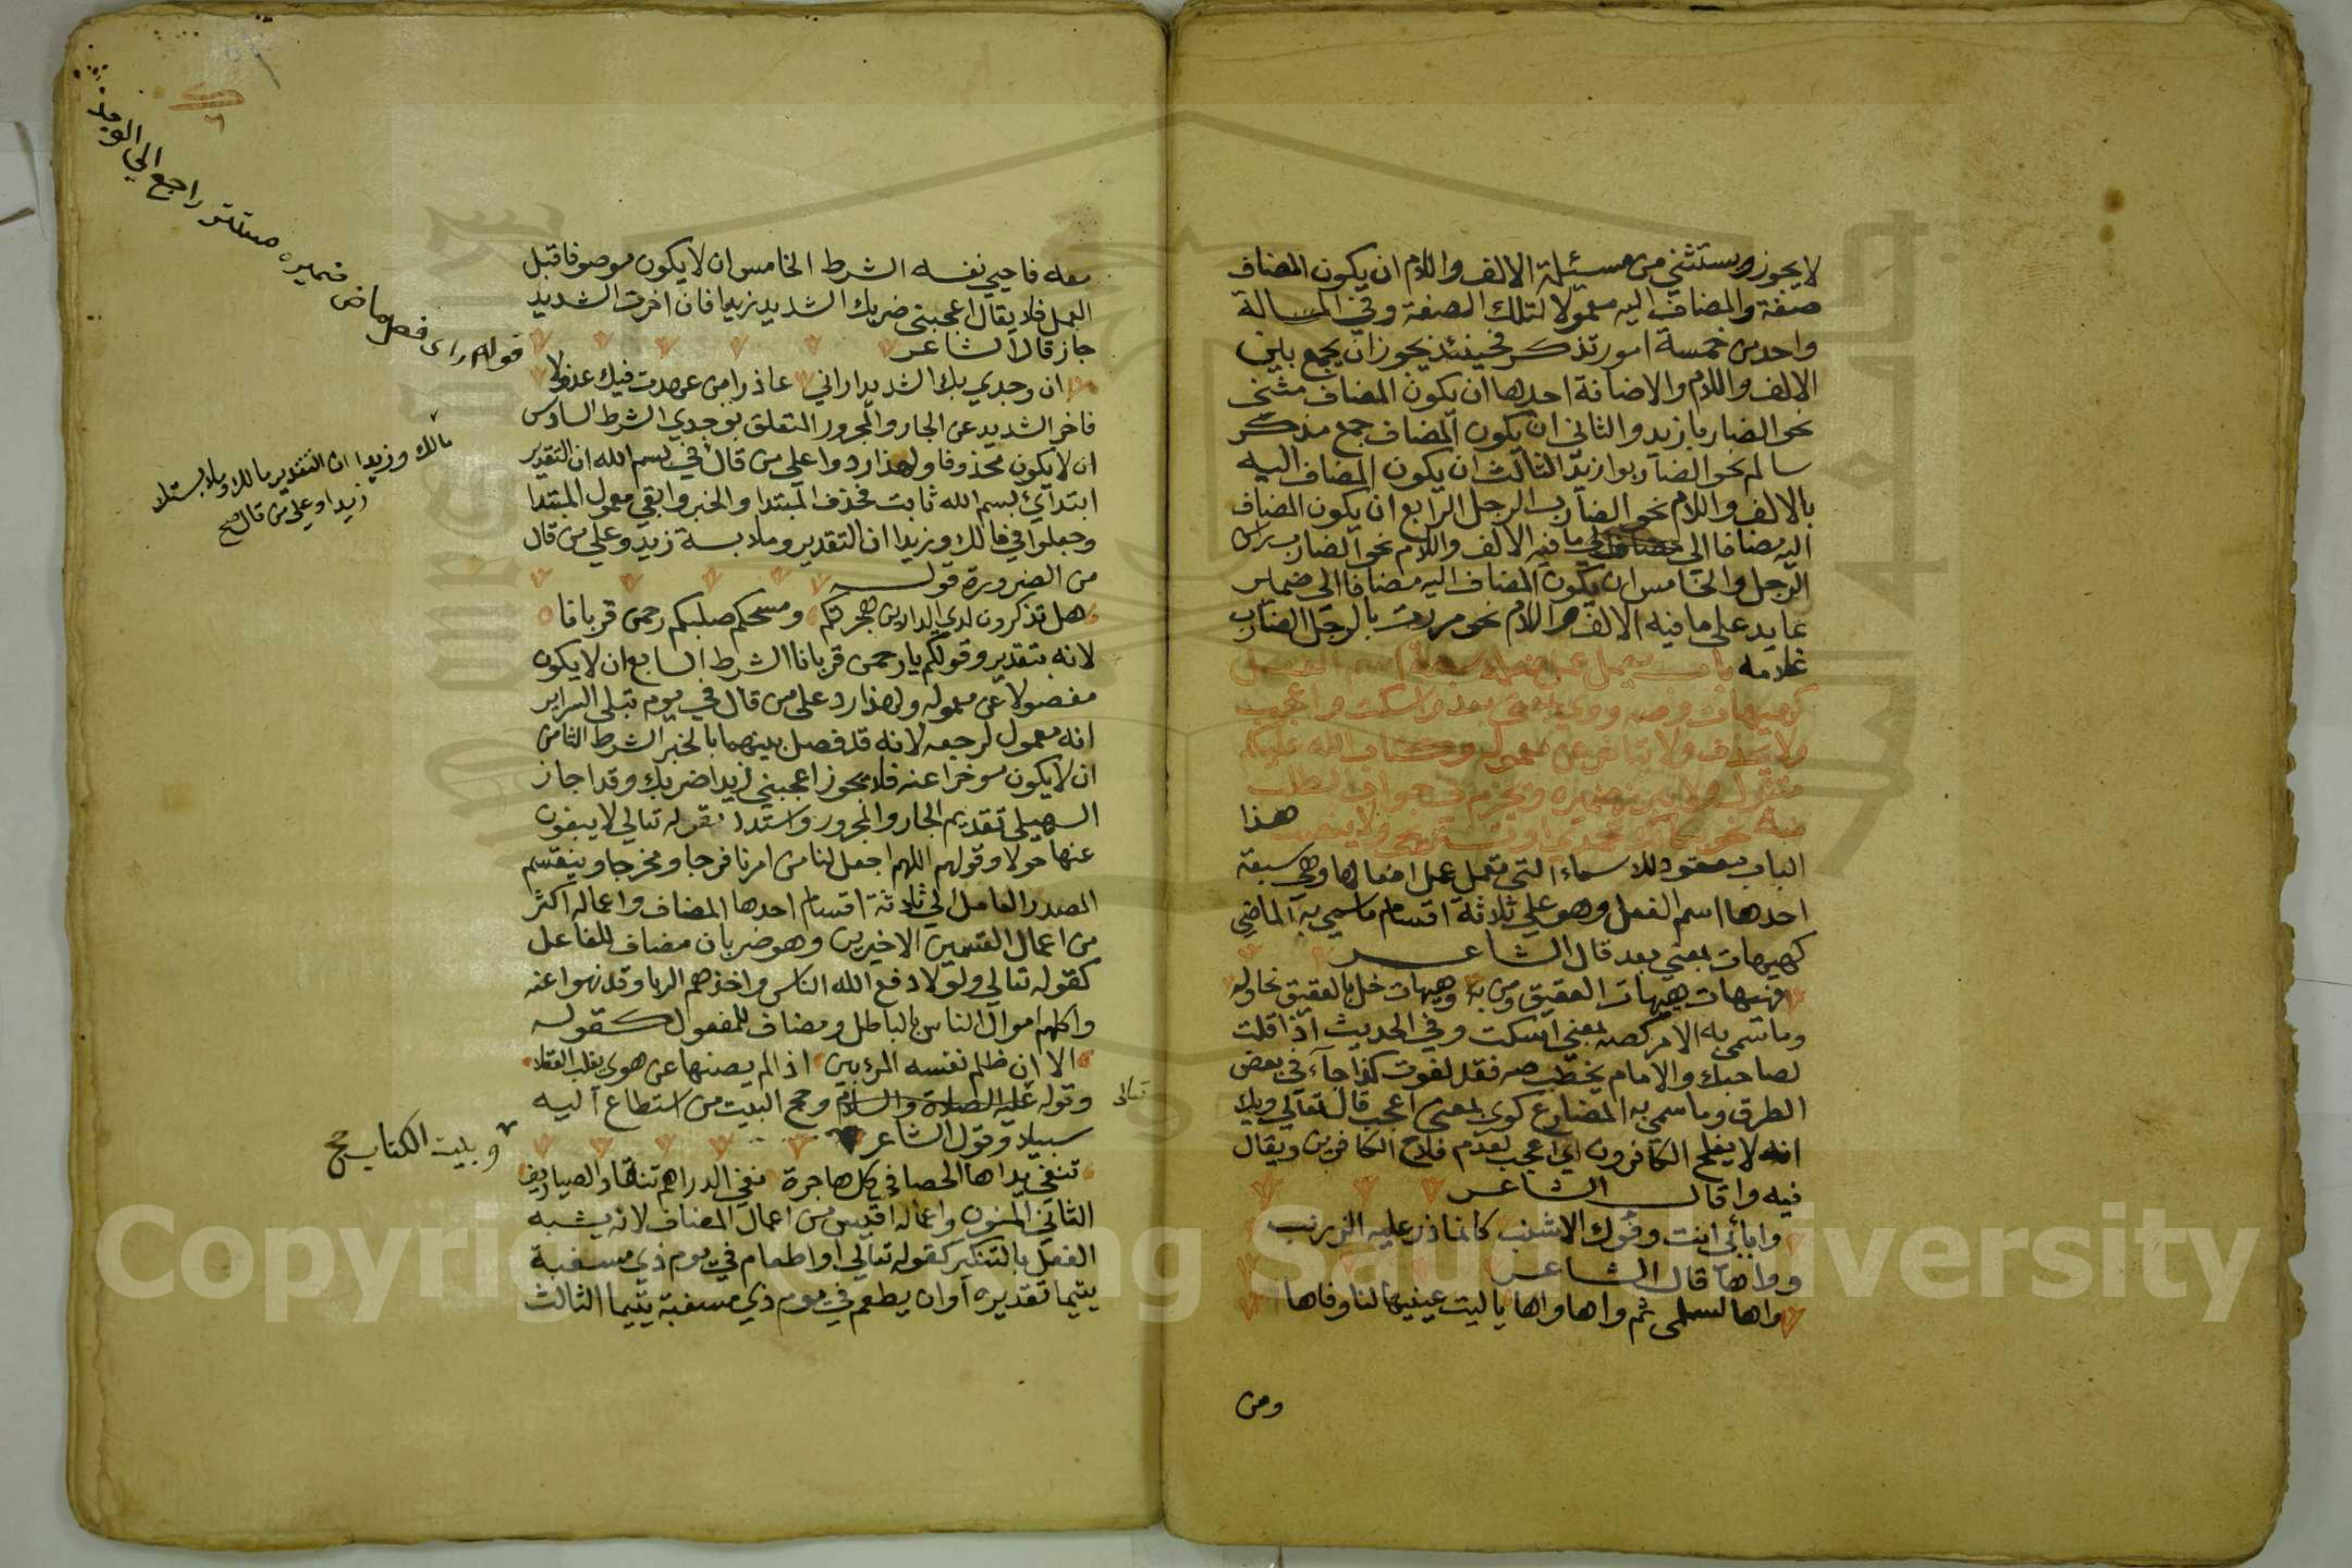 لا يجوز ويستثني من مسئلة الالف واللام ان يكون المضاف
صفة والمضاف اليه معمولا لتلك الصفة وفي المسالة
واحد من خمسة امور تذكر فحينئذ يجوز ان يجمع بين
الالف واللام والاضافة احدها ان يكون المضاف مثني
نحو الضاربا زيد والثاني ان يكون المضاف جمع مذكر
سالم نحو الضاربوا زيد الثالث ان يكون المضاف اليه
بالالف واللام نحو الضارب الرجل الرابع ان يكون المضاف
اليه مضافا الي ما فيه الالف واللام نحو الضارب راس
الرجل والخامس ان يكون المضاف اليه مضافا الى ضمير
عايد على ما فيه الالف واللام نحو مررت بالرجل الضارب
غلامه باب يعمل عمل فعله سبعة اسم الفعل
كهيهات وصه ووي بمعنى بعد واسكت واعجب
ولا يحذف ولا يتاخر عن معموله وكتاب الله عليكم
متاول ولا يبرز ضميره ويجزم في جواب الطلب
منه نحو مكانك تحمدي او تستريحي ولا ينصب
هذا
الباب معقود للاسماء التي تعمل عمل افعالها وهي سبعة
احدها اسم الفعل وهو علي ثلاثة اقسام ما سمي به الماضي
كهيهات بمعني بعد قال الشاعر
فهيهات هيهات العقيق ومن به وهيهات خل بالعقيق نحاوله
وما سمي به الامر كصه بمعني اسكت وفي الحديث اذا قلت
لصاحبك والامام يخطب صه فقد لغوت كذا جاء في بعض
الطرق وما سمي به المضارع كوي بمعني اعجب قال تعالي ويك
انه لا يفلح الكافرون اي اعجب لعدم فلاح الكافرين ويقال
فيه وا قال الشاعر
وا بأبي انت وفوك الاشنب كانما ذر عليه الزرنب
وواها قال الشاعر
واها لسلمى ثم واها واها يا ليت عينيها لنا وفاها
ومن
معه فاحيي نفسه الشرط الخامس ان لا يكون موصوفا قبل
العمل فلا يقال اعجبني ضربك الشديد زيدا فان اخرت الشديد
جاز قال الشاعر
ان وجدي بك الشديد اراني عاذرا من عهدت فيك عذولا
فاخر الشديد عن الجار والمجرور المتعلق بوجدي الشرط السادس
ان لا يكون محذوفا ولهذا ردوا علي من قال في بسم الله ان التقدير
ابتدأئ بسم الله ثابت فحذف المبتدا والخبر وابقي معمول المبتدا
وجعلوا في مالك وزيدا ان التقدير وملابسة زيد وعلي من قال
من الضرورة قوله
هل تذكرون لدي الدارين هجرتكم ومسحكم صلبكم رحمن قربانا
لانه بتقدير وقولكم يا رحمن قربانا الشرط السابع ان لا يكون
مفصولا عن معموله ولهذا رد على من قال في يوم تبلي السراير
انه معمول لرجعه لانه قد فصل بينهما بالخبر الشرط الثامن
ان لا يكون موخرا عنه فلا يجوز اعجبني زيدا ضربك وقد اجاز
السهيلي تقديم الجار والمجرور واستدل بقوله تعالي لا يبغون
عنها حولا وقولهم اللهم اجعل لنا من امرنا فرجا ومخرجا وينقسم
المصدر العامل الي ثلاثة اقسام احدها المضاف واعماله اكثر
من اعمال القسمين الاخيرين وهو ضربان مضاف للفاعل
كقوله تعالي ولولا دفع الله الناس واخذهم الربا وقد نهوا عنه
واكلهم اموال الناس بالباطل ومضاف للمفعول كقوله
الا ان ظلم نفسه المرء بين اذا لم يصنها عن هوى يغلب العقلا
وقوله عليه الصلاة والسلام وحج البيت من استطاع اليه
تعالى
سبيلا وقول الشاعر
تنفي يداها الحصا في كل هاجرة نفي الدراهم تنقاد الصياريف
الثاني المنون واعماله اقيس من اعمال المضاف لانه يشبه
الفعل بالتنكير كقوله تعالي او اطعام في يوم ذي مسغبة
يتيما تقديره او ان يطعم في يوم ذي مسغبة يتيما الثالث
قوله راى فعل ماض ضميره مستتر راجع الي الويد
مالك وزيدا ان التقدير مالك وملابستك
زيدا وعلي من قال صح
وبليت الكتاب صح
Copyright © King Saud University